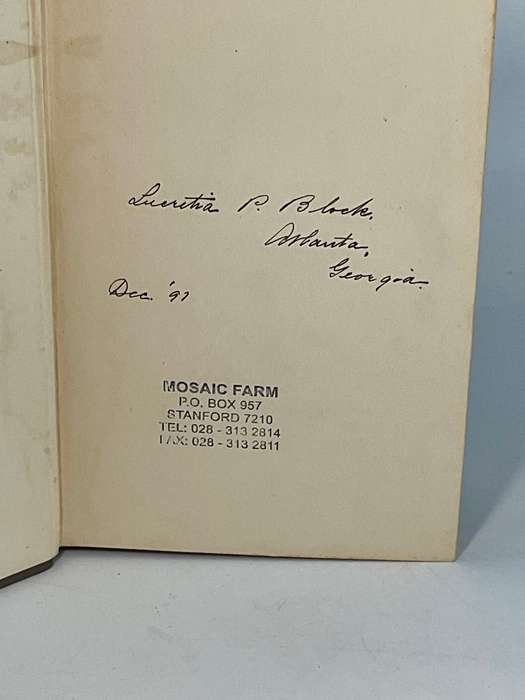 Lucretia P. Block.
Atlanta,
Georgia.
Dec. '97
MOSAIC FARM
P.O. BOX 957
STANFORD 7210
TEL: 028 - 313 2814
FAX: 028 - 313 2811